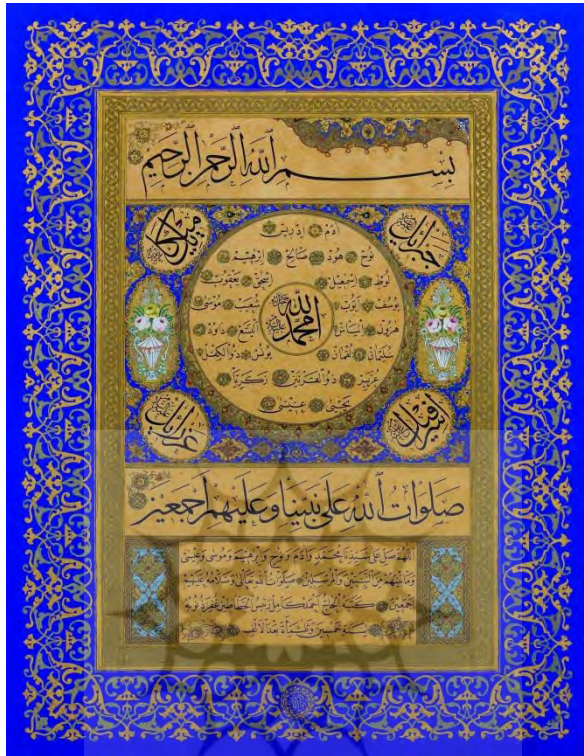 بسم الله الرحمن الرحيم
جبرائيل
ميكائيل
آدم إدريس
نوح هود صالح إبرهيم
لوط إسمعيل إسحق يعقوب
يوسف أيوب شعيب موسى
الله
محمد
هرون الياس اليسع داود
سليمان لقمان يونس ذوالكفل
عزير ذوالقرنين زكريا
يحيى عيسى
إسرافيل
عزرائيل
صلوات الله على نبينا وعليهم أجمعين
اللهم صل على سيدنا محمد وآدم ونوح وإبرهيم وموسى وعيسى
وما بينهم من النبيين والمرسلين صلوات الله تعالى وسلامه عليهم
أجمعين كتبه الحاج أحمد كامل رئيس الخطاطين غفر ذنوبه
سنة خمسين وثلثمأة بعد الالف